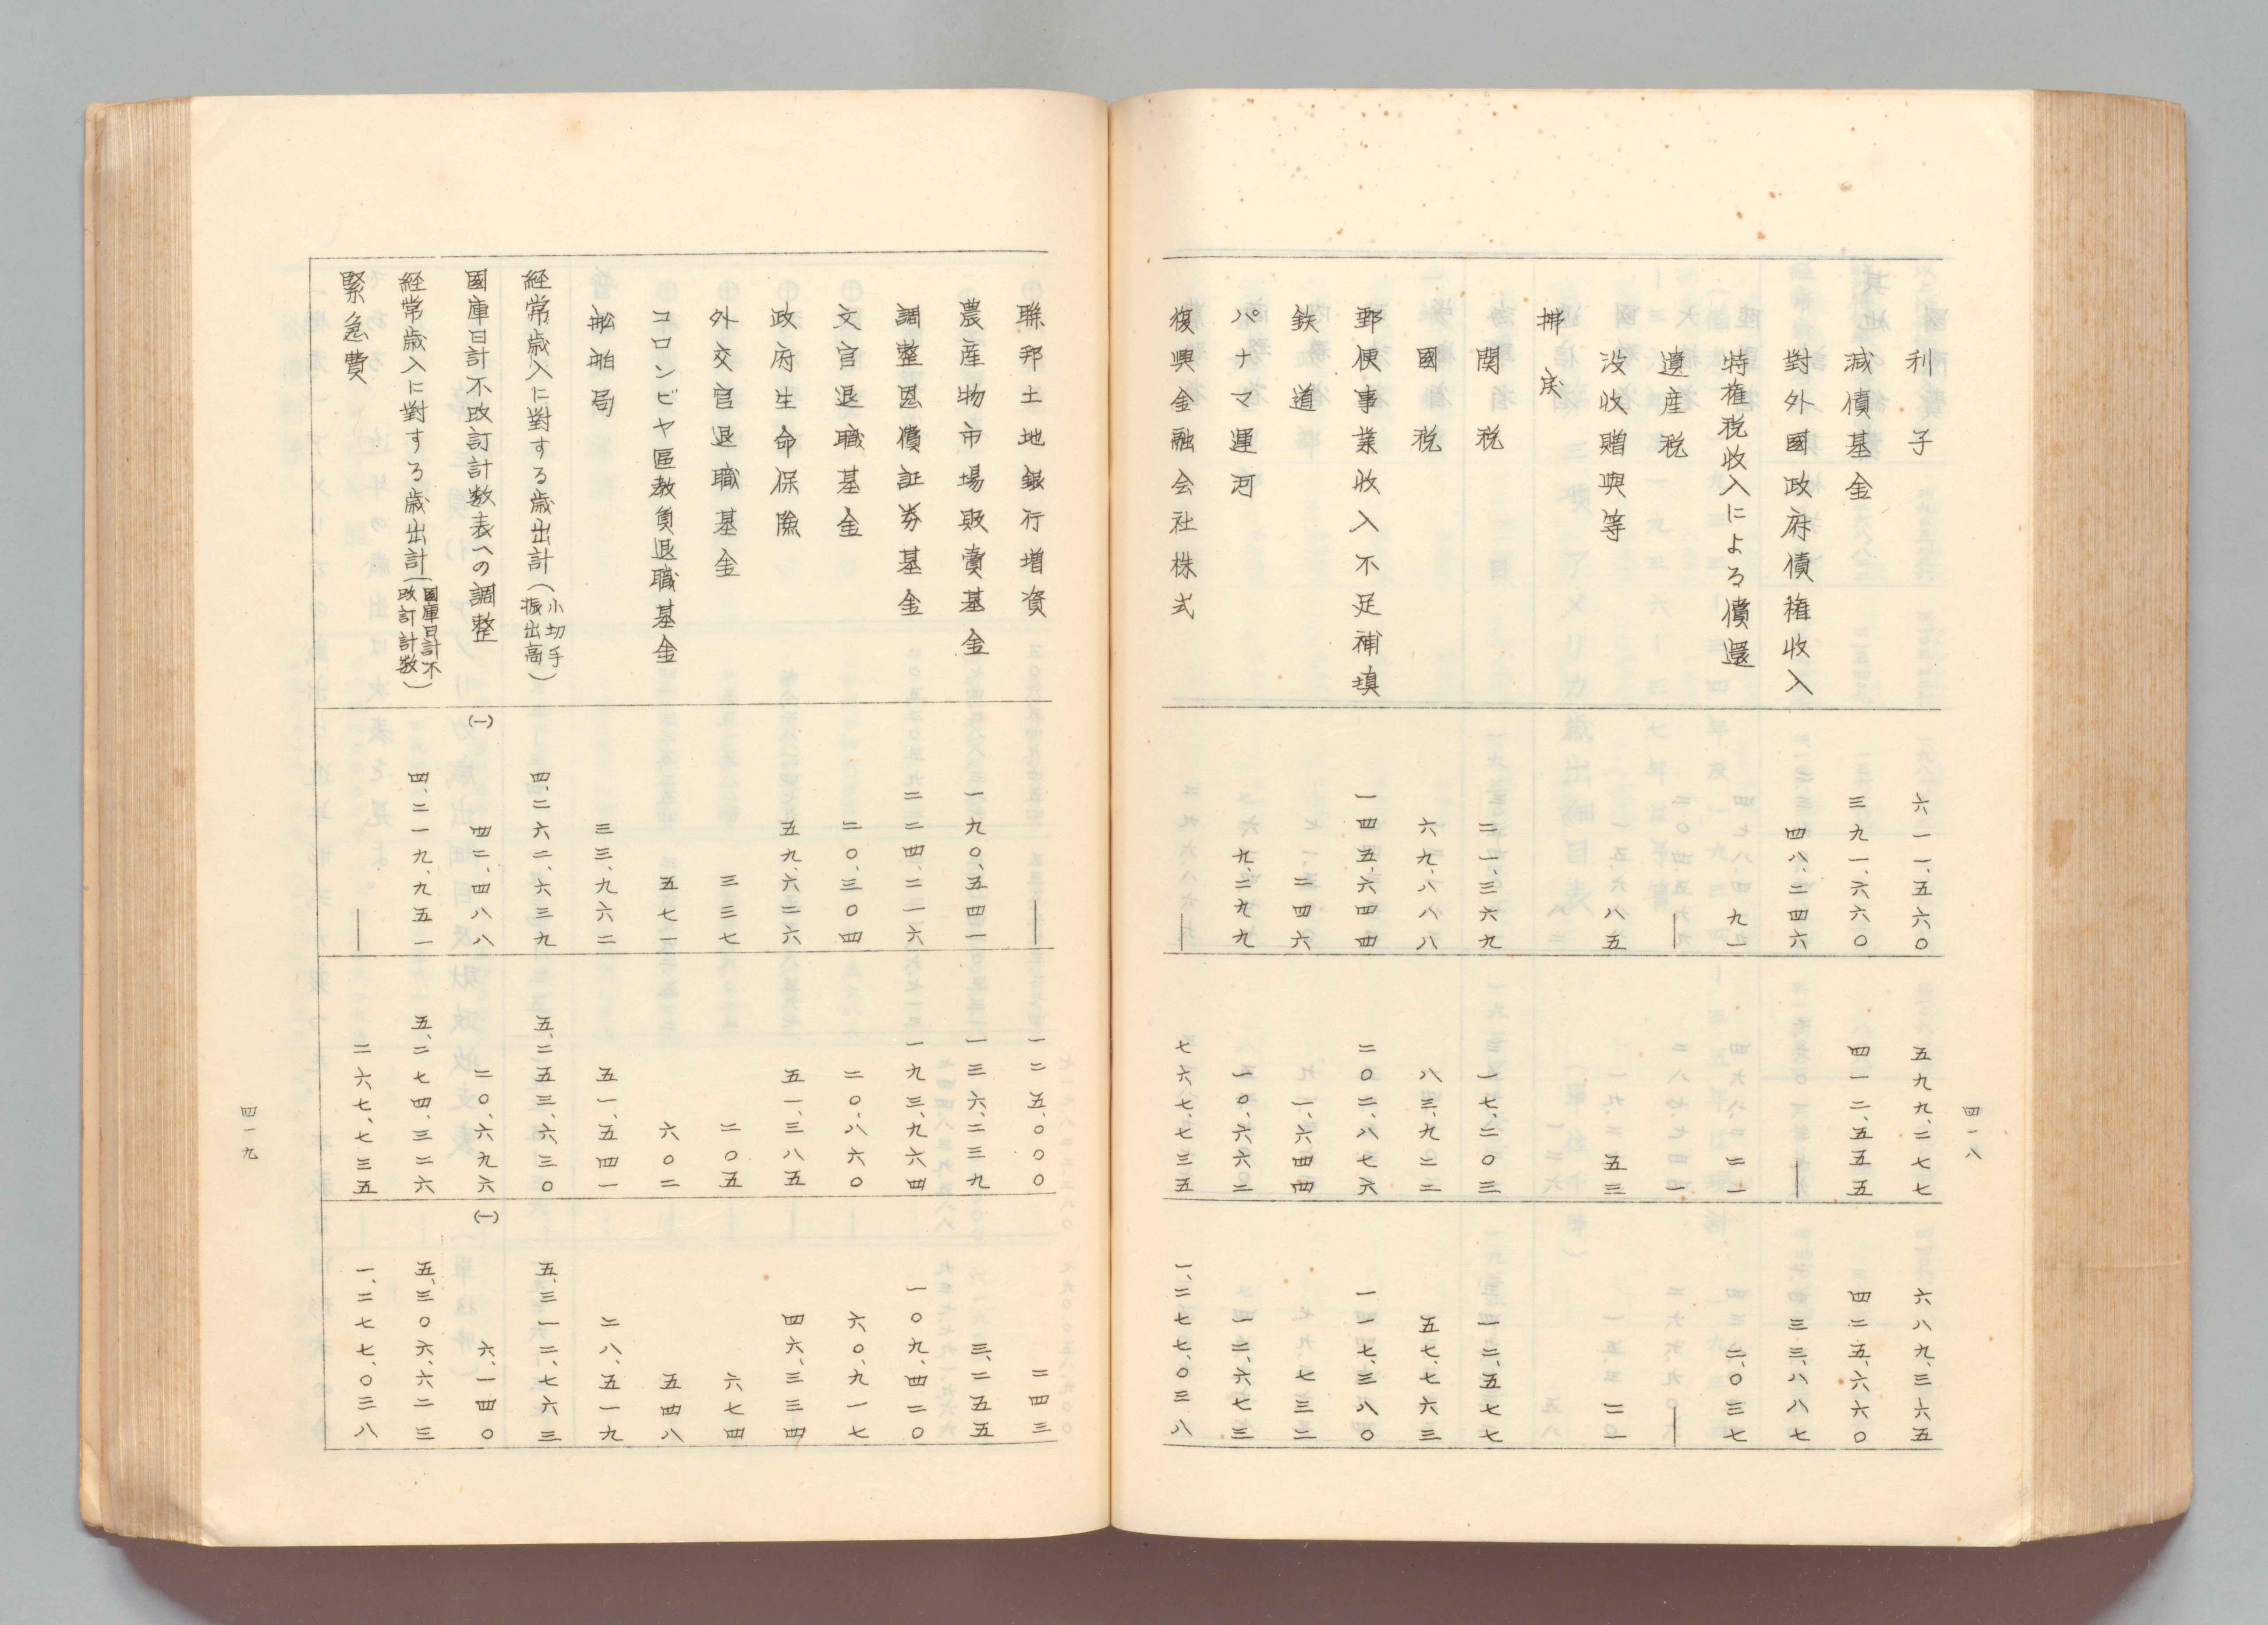 四一八
利子 六一一、五六〇 五九九、二七七 六八九、三六五
減債基金 三九一、六六〇 四一二、五五五 四二五、六六〇
對外國政府債権收入 四八、二四六 ― 三三、八八七
特権税收入による償還 九一 二一 二、〇三七
遺産税 ― 一 ―
没收贈與等 八五 五三 二一
拂戻
関税 二一、三六九 一七、二〇三 一二、五七七
國税 六九、八八八 八三、九二二 五七、七六三
郵便事業收入不足補塡 一四五、六四四 二〇二、八七六 一一七、三八〇
鉄道 二四六 一、六四四 七三二
パナマ運河 九、二九九 一〇、六六二 一二、六七三
復興金融会社株式 ― 七六七、七三五 一、二七七、〇三八
聯邦土地銀行増資 ― 一二五、〇〇〇 二四三
農産物市場販賣基金 一九〇、五四一 一三六、二三九 三、二五五
調整恩償証券基金 二二四、二一六 一九三、九六四 一〇九、四二〇
文官退職基金 二〇、三〇四 二〇、八六〇 六〇、九一七
政府生命保險 五九、六二六 五一、三八五 四六、三三四
外交官退職基金 三三七 二〇五 六七四
コロンビヤ區教員退職基金 五七一 六〇二 五四八
船舶局 三三、九六二 五一、五四一 二八、五一九
経常歳入に對する歳出計(小切手振出高) 四、二六二、六三九 五、二五三、六三〇 五、三一二、七六三
國庫日計不改訂計数表への調整 (一) 四二、四八八 二〇、六九六 (一) 六、一四〇
経常歳入に對する歳出計(國庫日計不改訂計数) 四、二一九、九五一 五、二七四、三二六 五、三〇六、六二三
緊急費 ― 二六七、七三五 一、二七七、〇三八
四一九